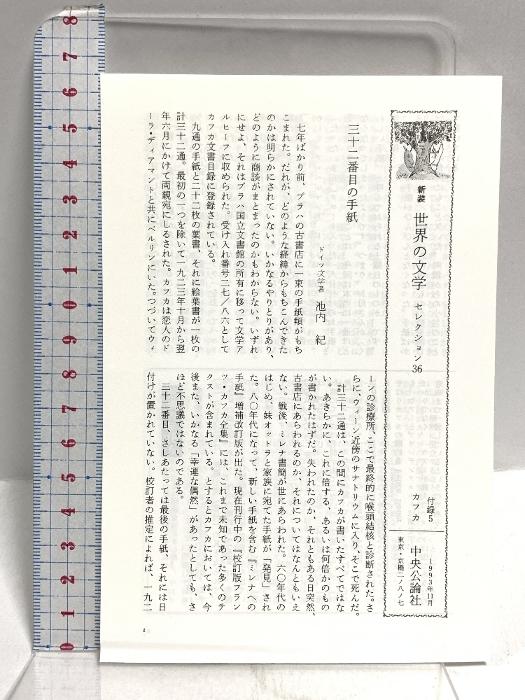 新装 世界の文学 セレクション36
付録5
カフカ
1993年11月
中央公論社
東京・京橋二ノ八ノ七
三十二番目の手紙
ドイツ文学者 池内 紀
七年ばかり前、プラハの古書店に一束の手紙類がもち
こまれた。だれが、どのような経緯からもちこんできた
のかは明らかにされていない。いかなるやりとりがあり、
どのように商談がまとまったのかもわからない。いずれ
にせよ、それはプラハ国立文書館の所有に移って文学ア
ルヒーフに収められた。受け入れ番号三七／八六として
カフカ文書目録に登録されている。
九通の手紙と二十二枚の葉書、それに絵葉書が一枚の
計三十二通。最初の一つを除いて一九二三年十月から翌
年六月にかけて両親宛にしるされた。カフカは恋人のド
ーラ・ディアマントと共にベルリンにいた。つづいてウィ
ーンの診療所、ここで最終的に喉頭結核と診断された。さ
らに、ウィーン近傍のサナトリウムに入り、そこで死んだ。
計三十二通は、この間にカフカが書いたすべてではな
い。あきらかに、これに倍する、あるいは何倍かのもの
が書かれたはずだ。失われたのか、それともある日突然、
古書店にあらわれるのか、それについてはなんともいえ
ない。戦後、ミレナ書簡が世にあらわれた。六〇年代の
はじめ、妹オットラと家族に宛てた手紙が「発見」され
た。八〇年代になって、新しい手紙を含む『ミレナへの
手紙』増補改訂版が出た。現在刊行中の『校訂版フラン
ツ・カフカ全集』には、これまで未知であった多くのテ
クストが含まれている。とするとカフカにおいては、今
後また、いかなる「幸運な偶然」があったとしても、さ
ほど不思議ではないのである。
三十二番目、さしあたっては最後の手紙、それには日
付けが置かれていない。校訂者の推定によれば、一九二
8
7
6
5
4
3
2
1
0
1
2
3
4
5
6
7
8
9
0
1
2